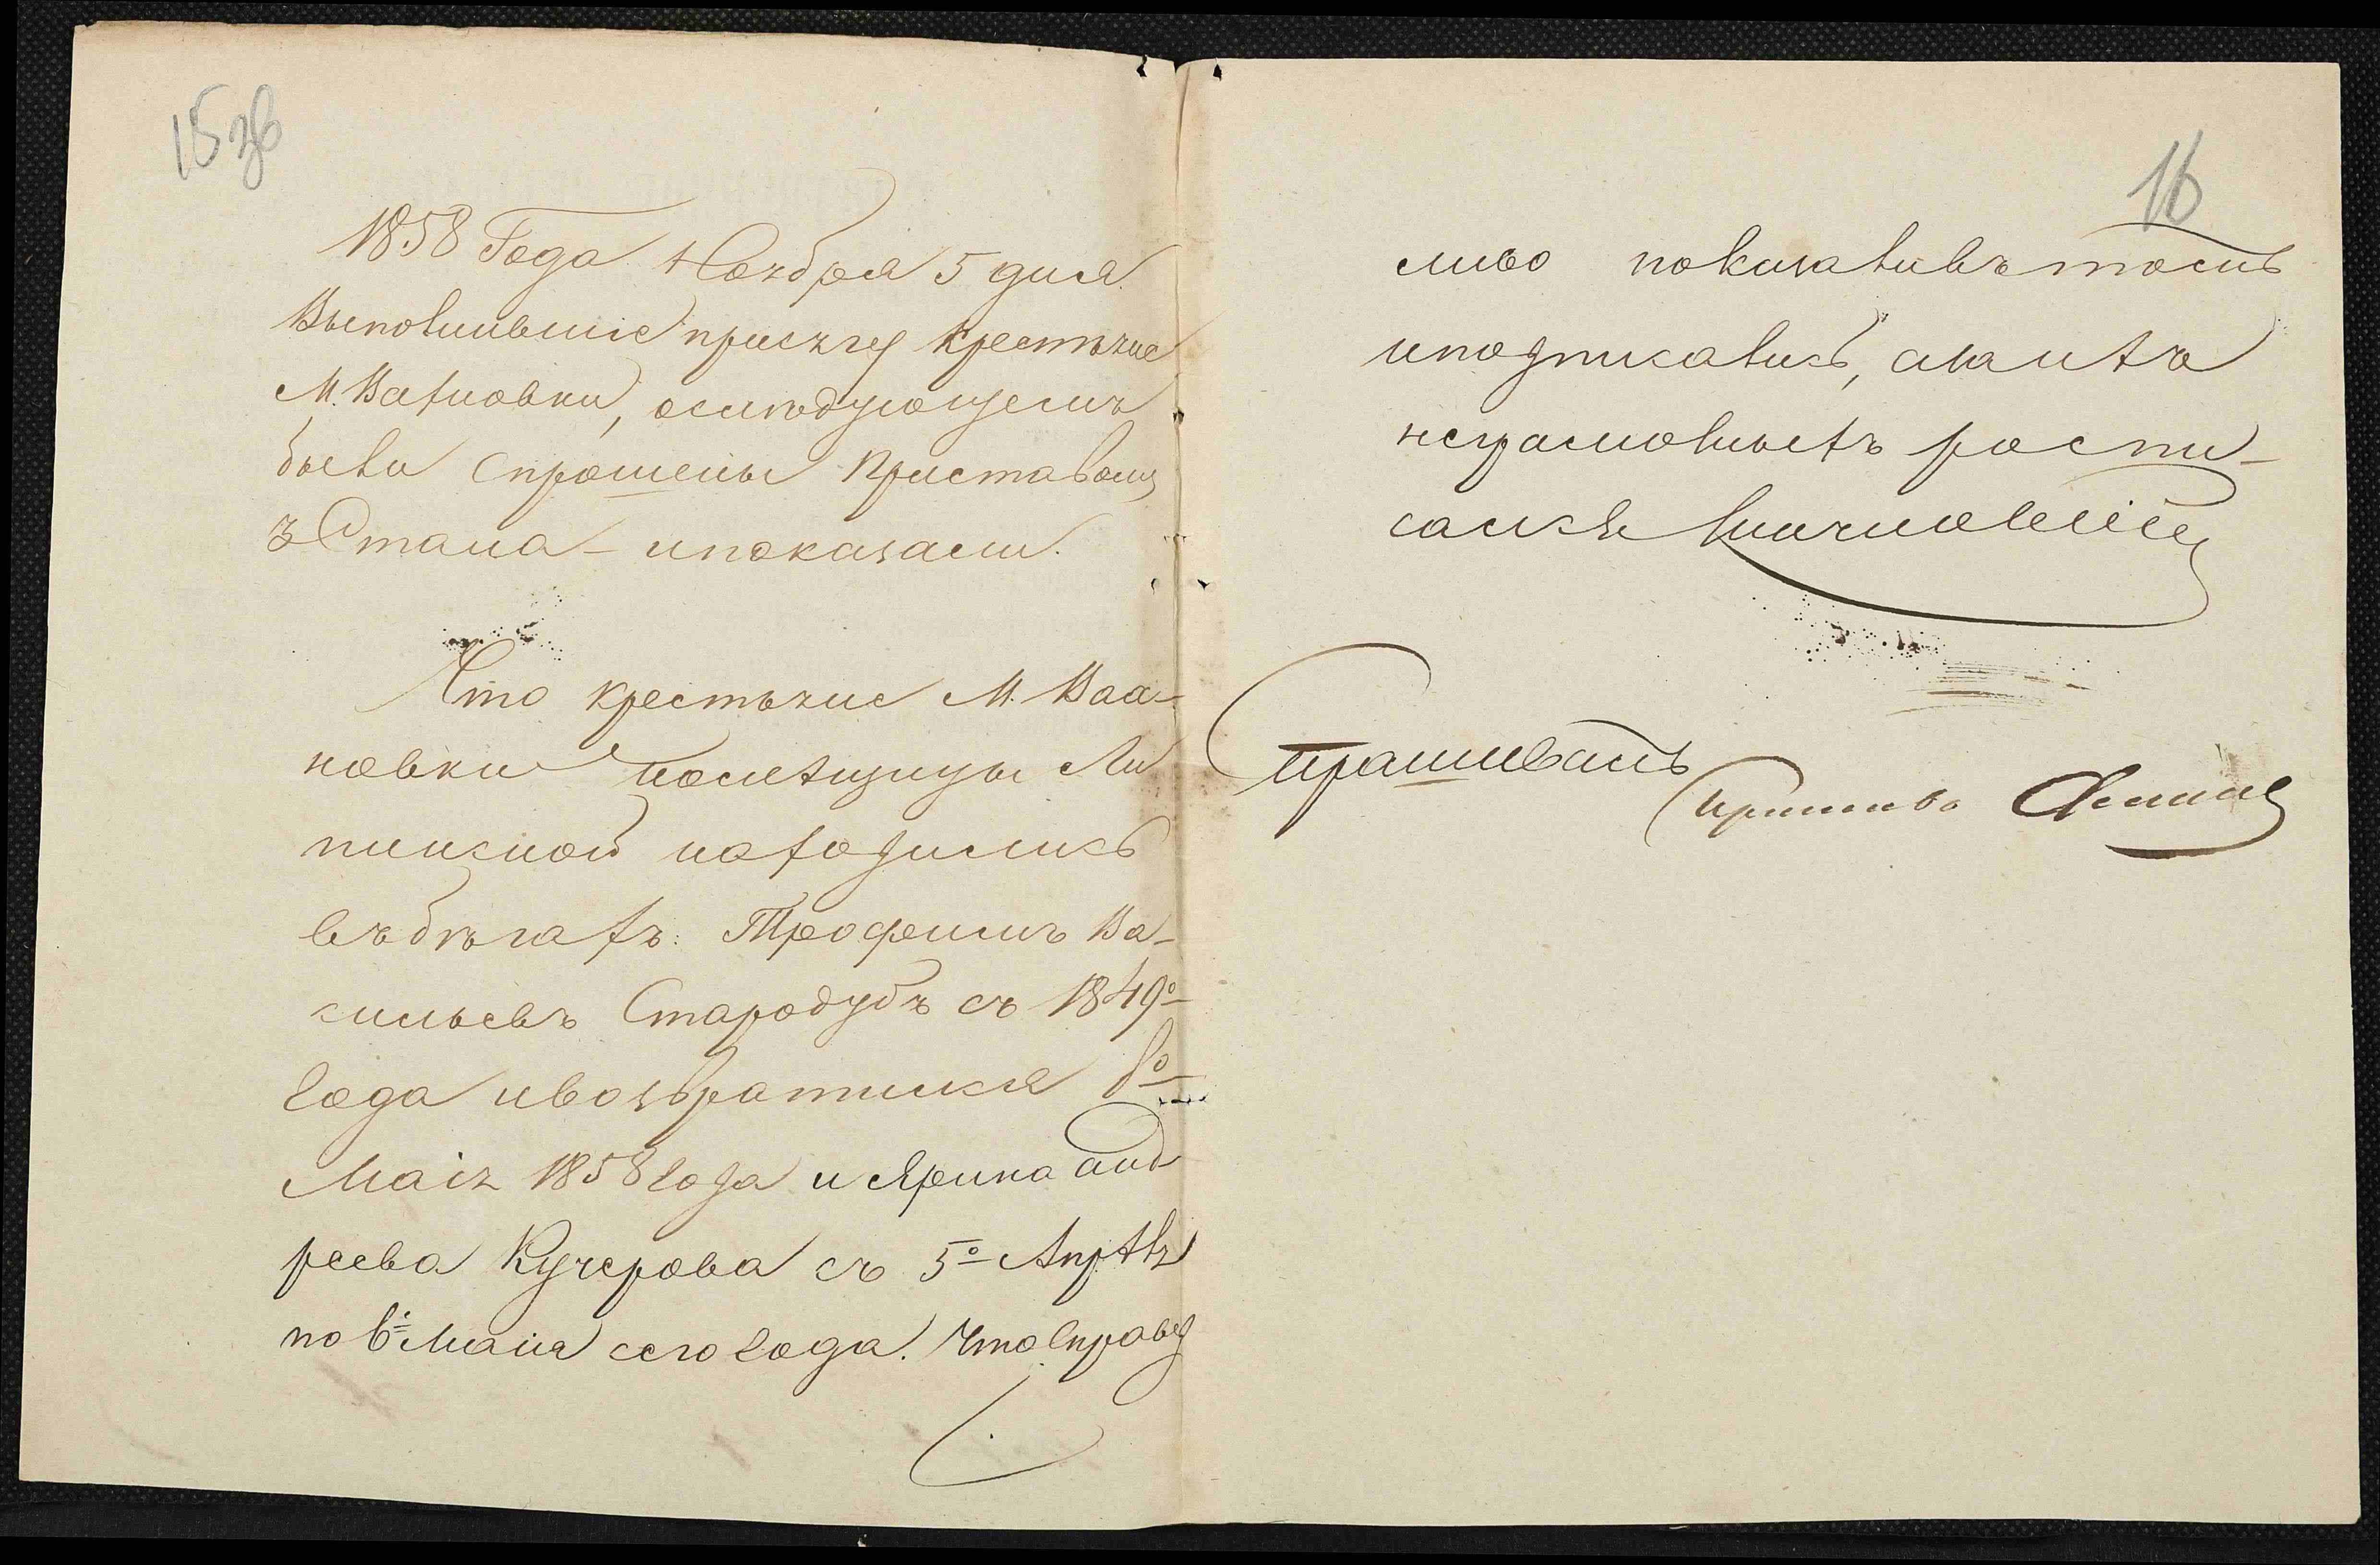 15 зв
1858 Года Ноября 5 дня
Выполнившіе присягу крестьяне
М. Вахновки, ослѣдующемъ
были спрошены Приставомъ
3 Стана – ипоказали.
Что крестьяне М. Вах-
новки помѣщицы Ли
пинской находились
въбѣгахъ: Трофимъ Ва-
сильевъ Стародубъ съ 1849º
года ивозвратился
Маія 1858 года и Ярина Анд
реева Кучерова съ 5º Апрѣля
по 6º Маія сего года. Что справед
16
ливо показавъ
иподписались, а
неграмотныхъ роспи-
сался
Спрашивалъ
Приставъ